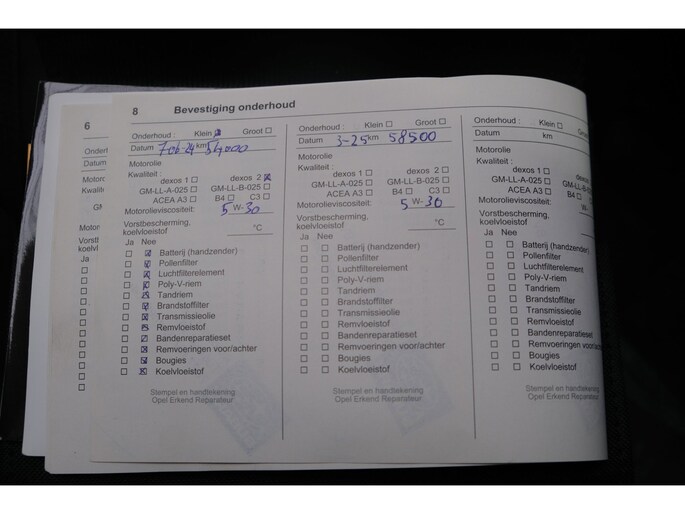 6
Onderh
Datum
Motoro
Kwaliteit
Motor
Vorstb
koelvl
Ja
8 Bevestiging onderhoud
Onderhoud : Klein Groot
Datum 7-06-24 km 54000
Motorolie
Kwaliteit :
dexos 1 dexos 2
GM-LL-A-025 GM-LL-B-025
ACEA A3 B4 C3
Motorolieviscositeit: 5 W- 30
Vorstbescherming,
koelvloeistof °C
Ja Nee
Batterij (handzender)
Pollenfilter
Luchtfilterelement
Poly-V-riem
Tandriem
Brandstoffilter
Transmissieolie
Remvloeistof
Bandenreparatieset
Remvoeringen voor/achter
Bougies
Koelvloeistof
Stempel en handtekening
Opel Erkend Reparateur
Onderhoud : Klein Groot
Datum 3-25 km 58500
Motorolie
Kwaliteit :
dexos 1 dexos 2
GM-LL-A-025 GM-LL-B-025
ACEA A3 B4 C3
Motorolieviscositeit: 5 W- 30
Vorstbescherming,
koelvloeistof °C
Ja Nee
Batterij (handzender)
Pollenfilter
Luchtfilterelement
Poly-V-riem
Tandriem
Brandstoffilter
Transmissieolie
Remvloeistof
Bandenreparatieset
Remvoeringen voor/achter
Bougies
Koelvloeistof
Stempel en handtekening
Opel Erkend Reparateur
Onderhoud : Klein Groot
Datum km
Motorolie
Kwaliteit :
dexos 1 dexos 2
GM-LL-A-025 GM-LL-B-025
ACEA A3 B4 C3
Motorolieviscositeit: W-
Vorstbescherming,
koelvloeistof
Ja Nee
Batterij (handzender)
Pollenfilter
Luchtfilterelement
Poly-V-riem
Tandriem
Brandstoffilter
Transmissieolie
Remvloeistof
Bandenreparatieset
Remvoeringen voor/achter
Bougies
Koelvloeistof
Stempel en handtekening
Opel Erkend Reparateur